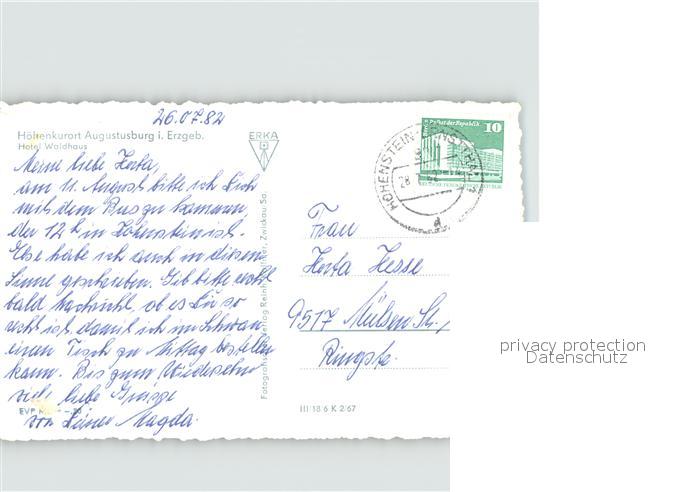 26.07.82
Höhenkurort Augustusburg i. Erzgeb.
Hotel Waldhaus
ERKA
Meine liebe Herta,
am 11. August bitte ich Dich
mit dem Bus zu kommen,
der 12 h in Hohenstein ist.
Else habe ich auch in diesem
Sinne geschrieben. Gib bitte recht
bald Nachricht, ob es Dir so
recht ist, damit ich im Schwan
einen Tisch zu Mittag bestellen
kann. Bis zum Wiedersehn
viele liebe Grüsse
von Deiner Magda.
EVP
Zwickau Sa.
HOHENSTEIN-ERNSTTHAL 1
28.
a
Palast der Republik
10
Frau
Herta Hesse
9517 Mülsen St.
Ringstr.
III 18 6 K 2/67
privacy protection
Datenschutz